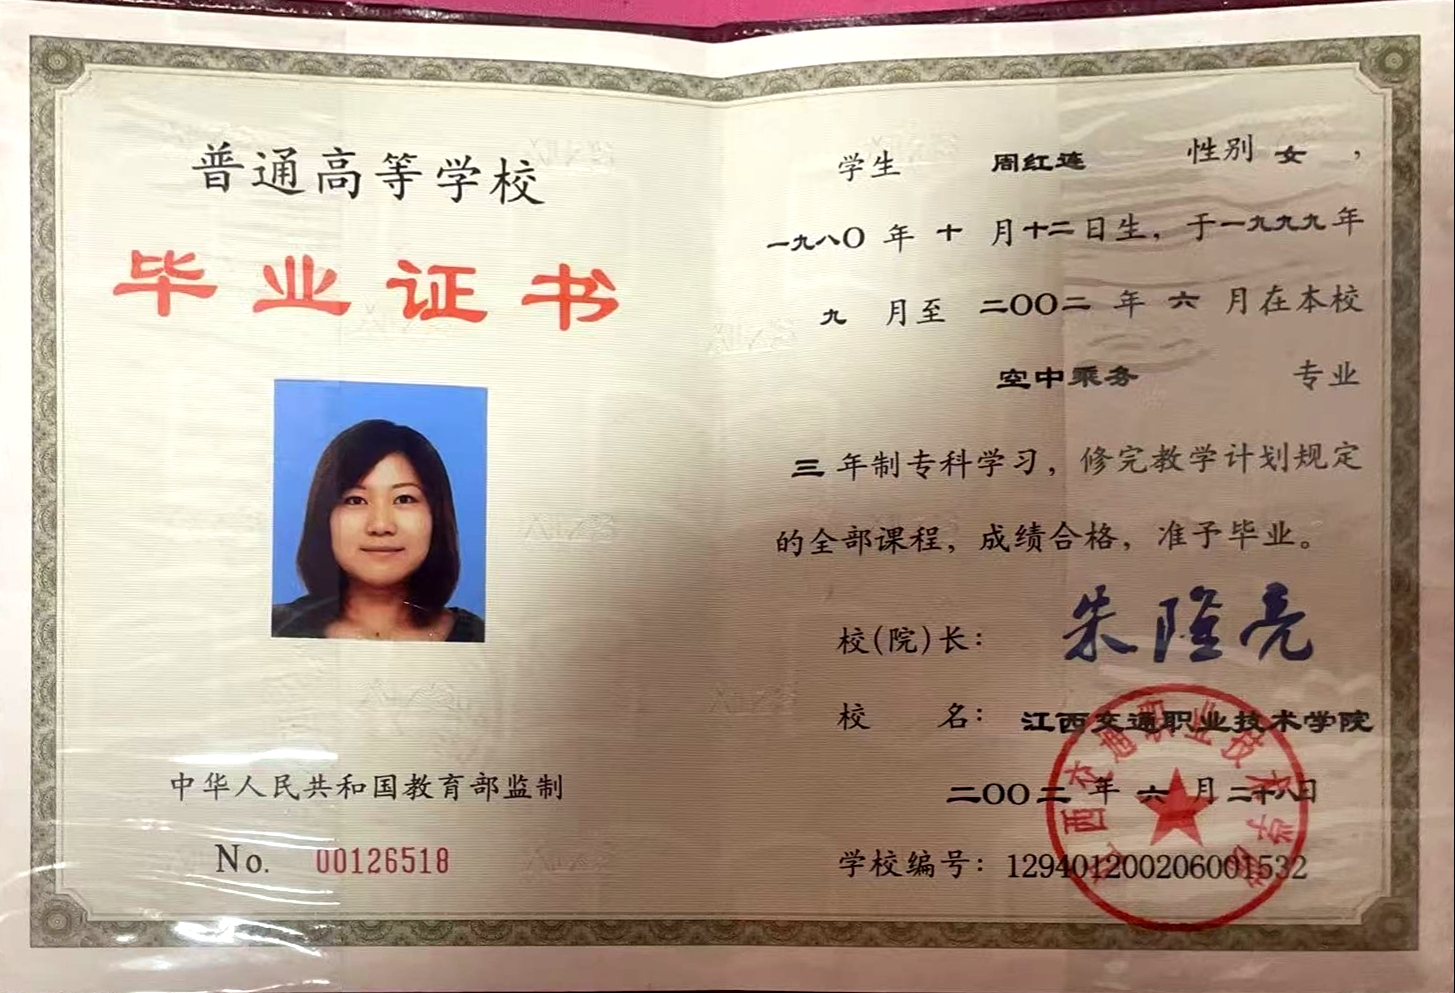 普通高等学校
毕业证书
中华人民共和国教育部监制
No. 00126518
学生 周红莲 性别 女 ，
一九八〇 年 十 月十二日生，于一九九九年
九 月至 二〇〇二 年 六 月在本校
空中乘务 专业
三年制专科学习，修完教学计划规定
的全部课程，成绩合格，准予毕业。
校(院)长： 朱隆亮
校 名： 江西交通职业技术学院
二〇〇二 年 六 月 二十八日
学校编号：129401200206001532
江西交通职业技术学院